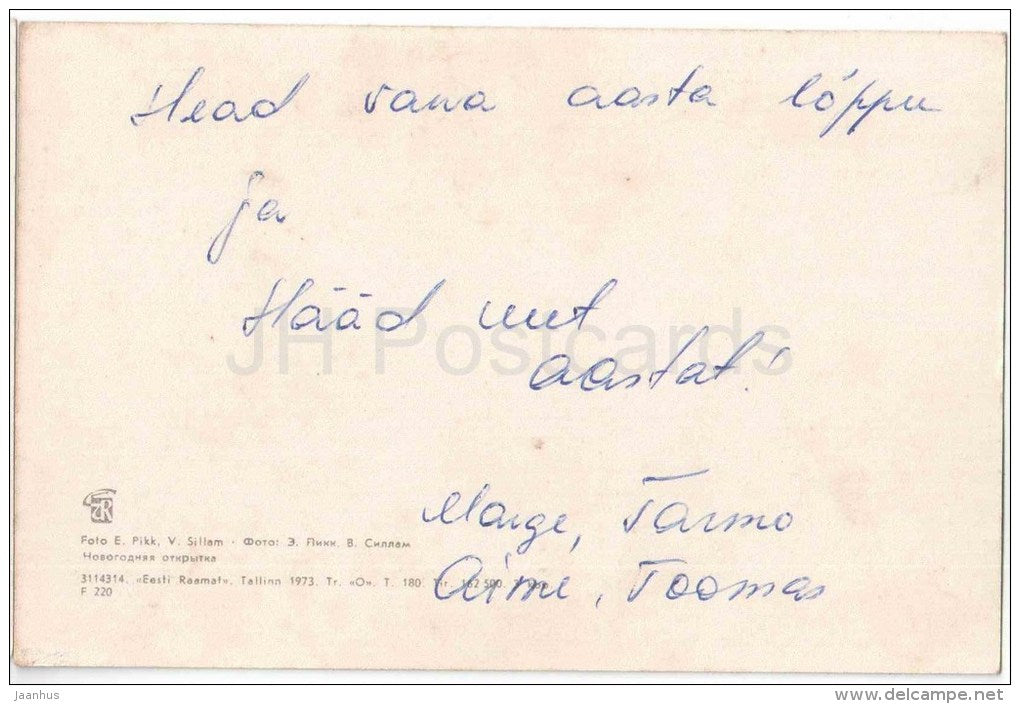 Head vana aasta lõppu
ja
Hääd uut
aastat!
JH Postcards
Marge, Tarmo
Aime, Toomas
Foto E. Pikk, V. Sillam · Фото: Э. Пикк, В. Силлам
Новогодняя открытка
3114314. «Eesti Raamat». Tallinn 1973. Tr. «O». T. 180 Tir. 162 500.
F 220
jaanhus
www.delcampe.net